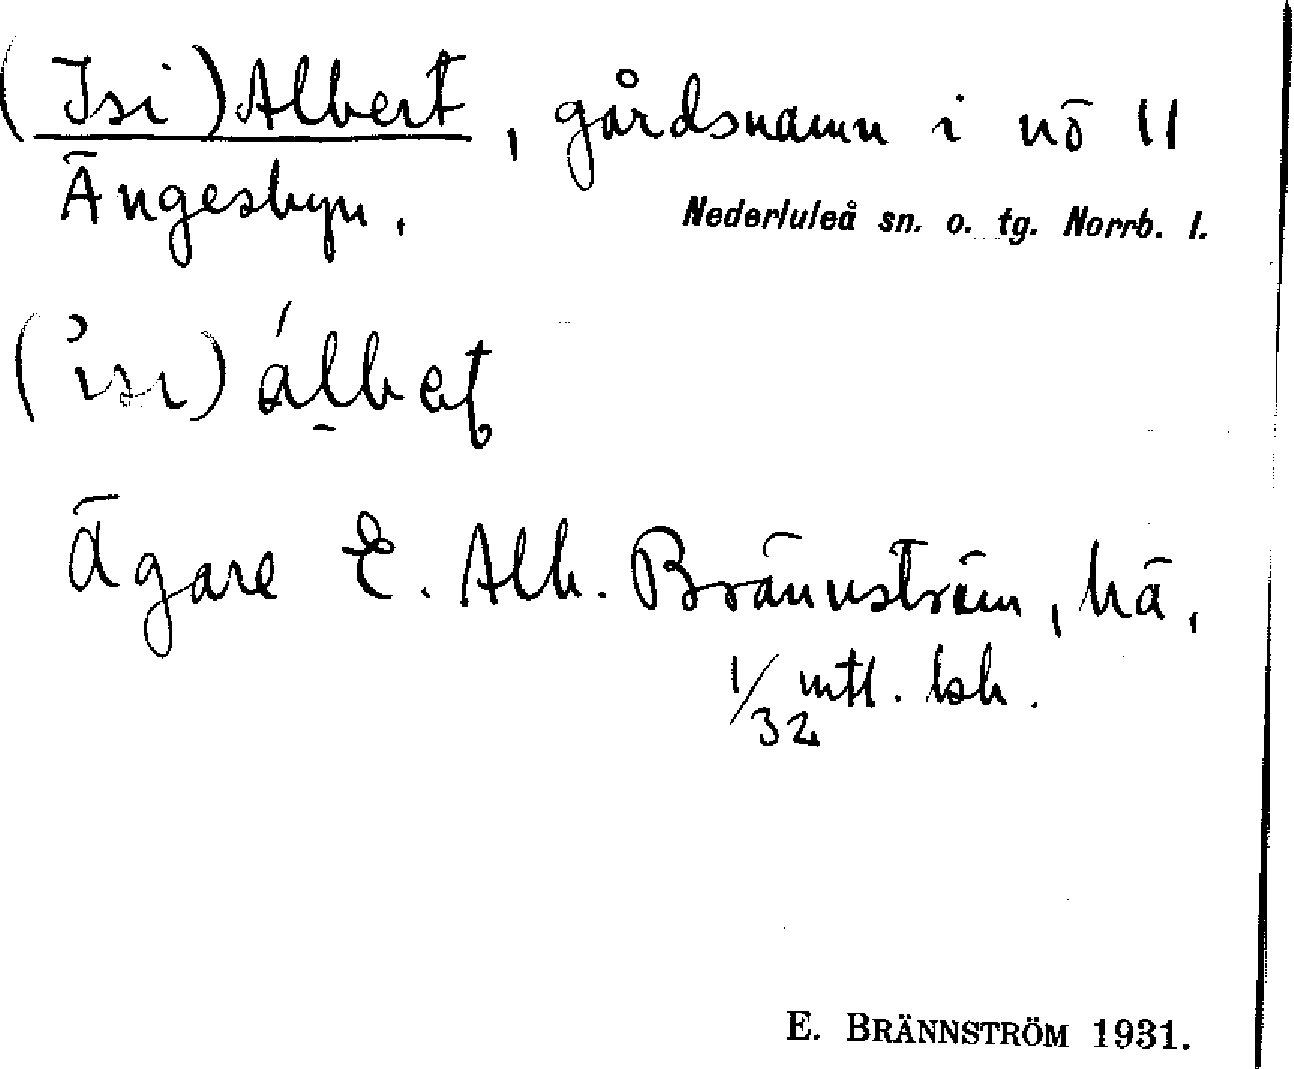 (Isi)Albert, gårdsnamn i nö 11
Ängesbyn.
Nederluleå sn. o. tg. Norrb. l.
(ısı) álbeţ
Ägare E. Alb. Brännström, hä,
1/32 mtl. bsk.
E. BRÄNNSTRÖM 1931.